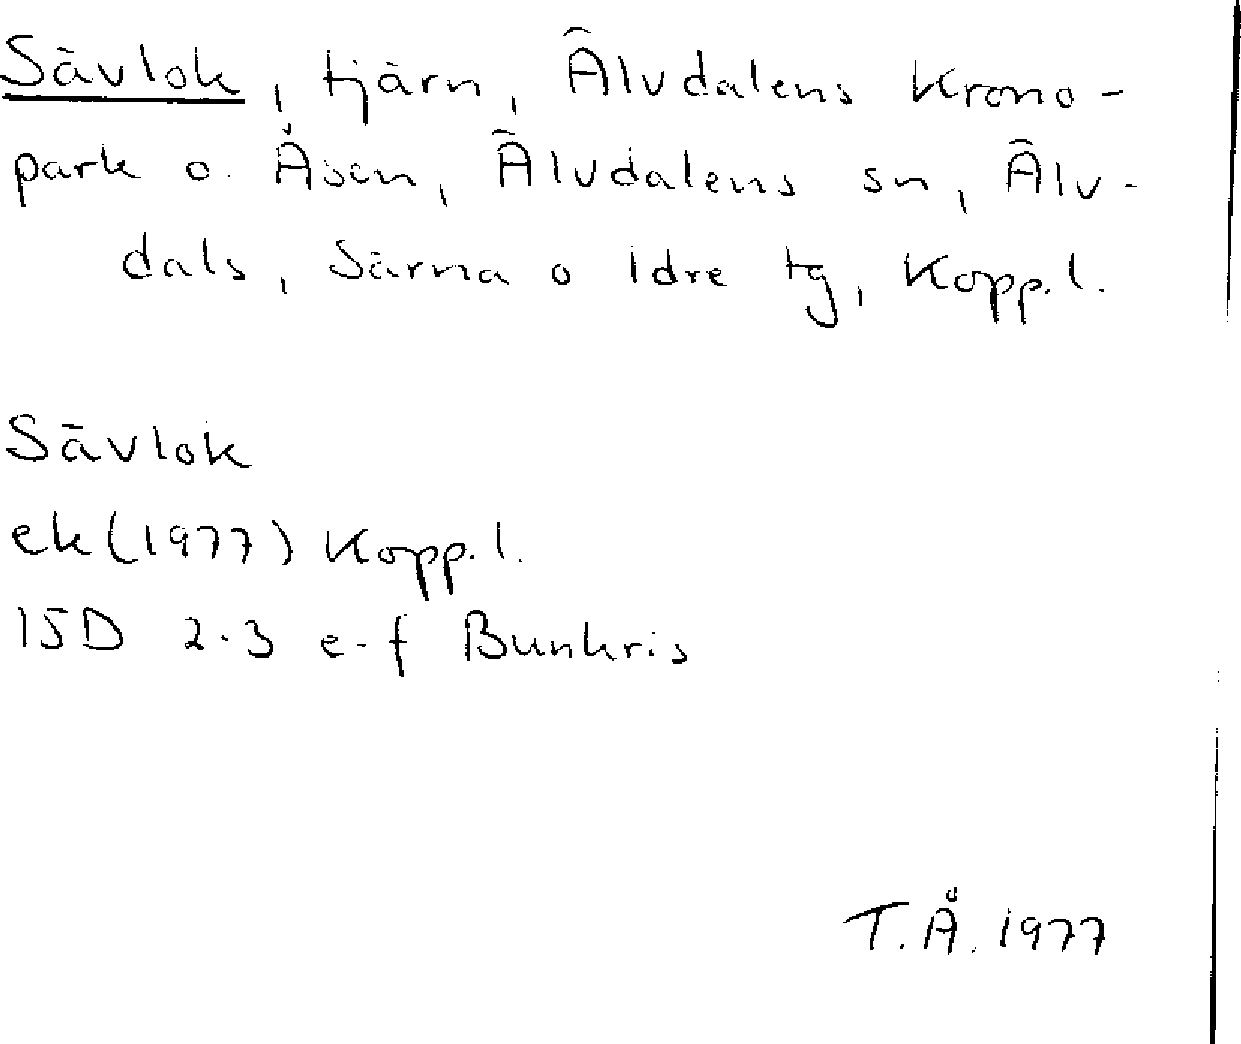 Sävlok, tjärn, Älvdalens Krono-
park o. Åsen, Älvdalens sn, Älv-
dals, Särna o Idre tg, Kopp.l.
Sävlok
ek(1977) Kopp.l.
15D 2-3 e-f Bunkris
T.Å. 1977